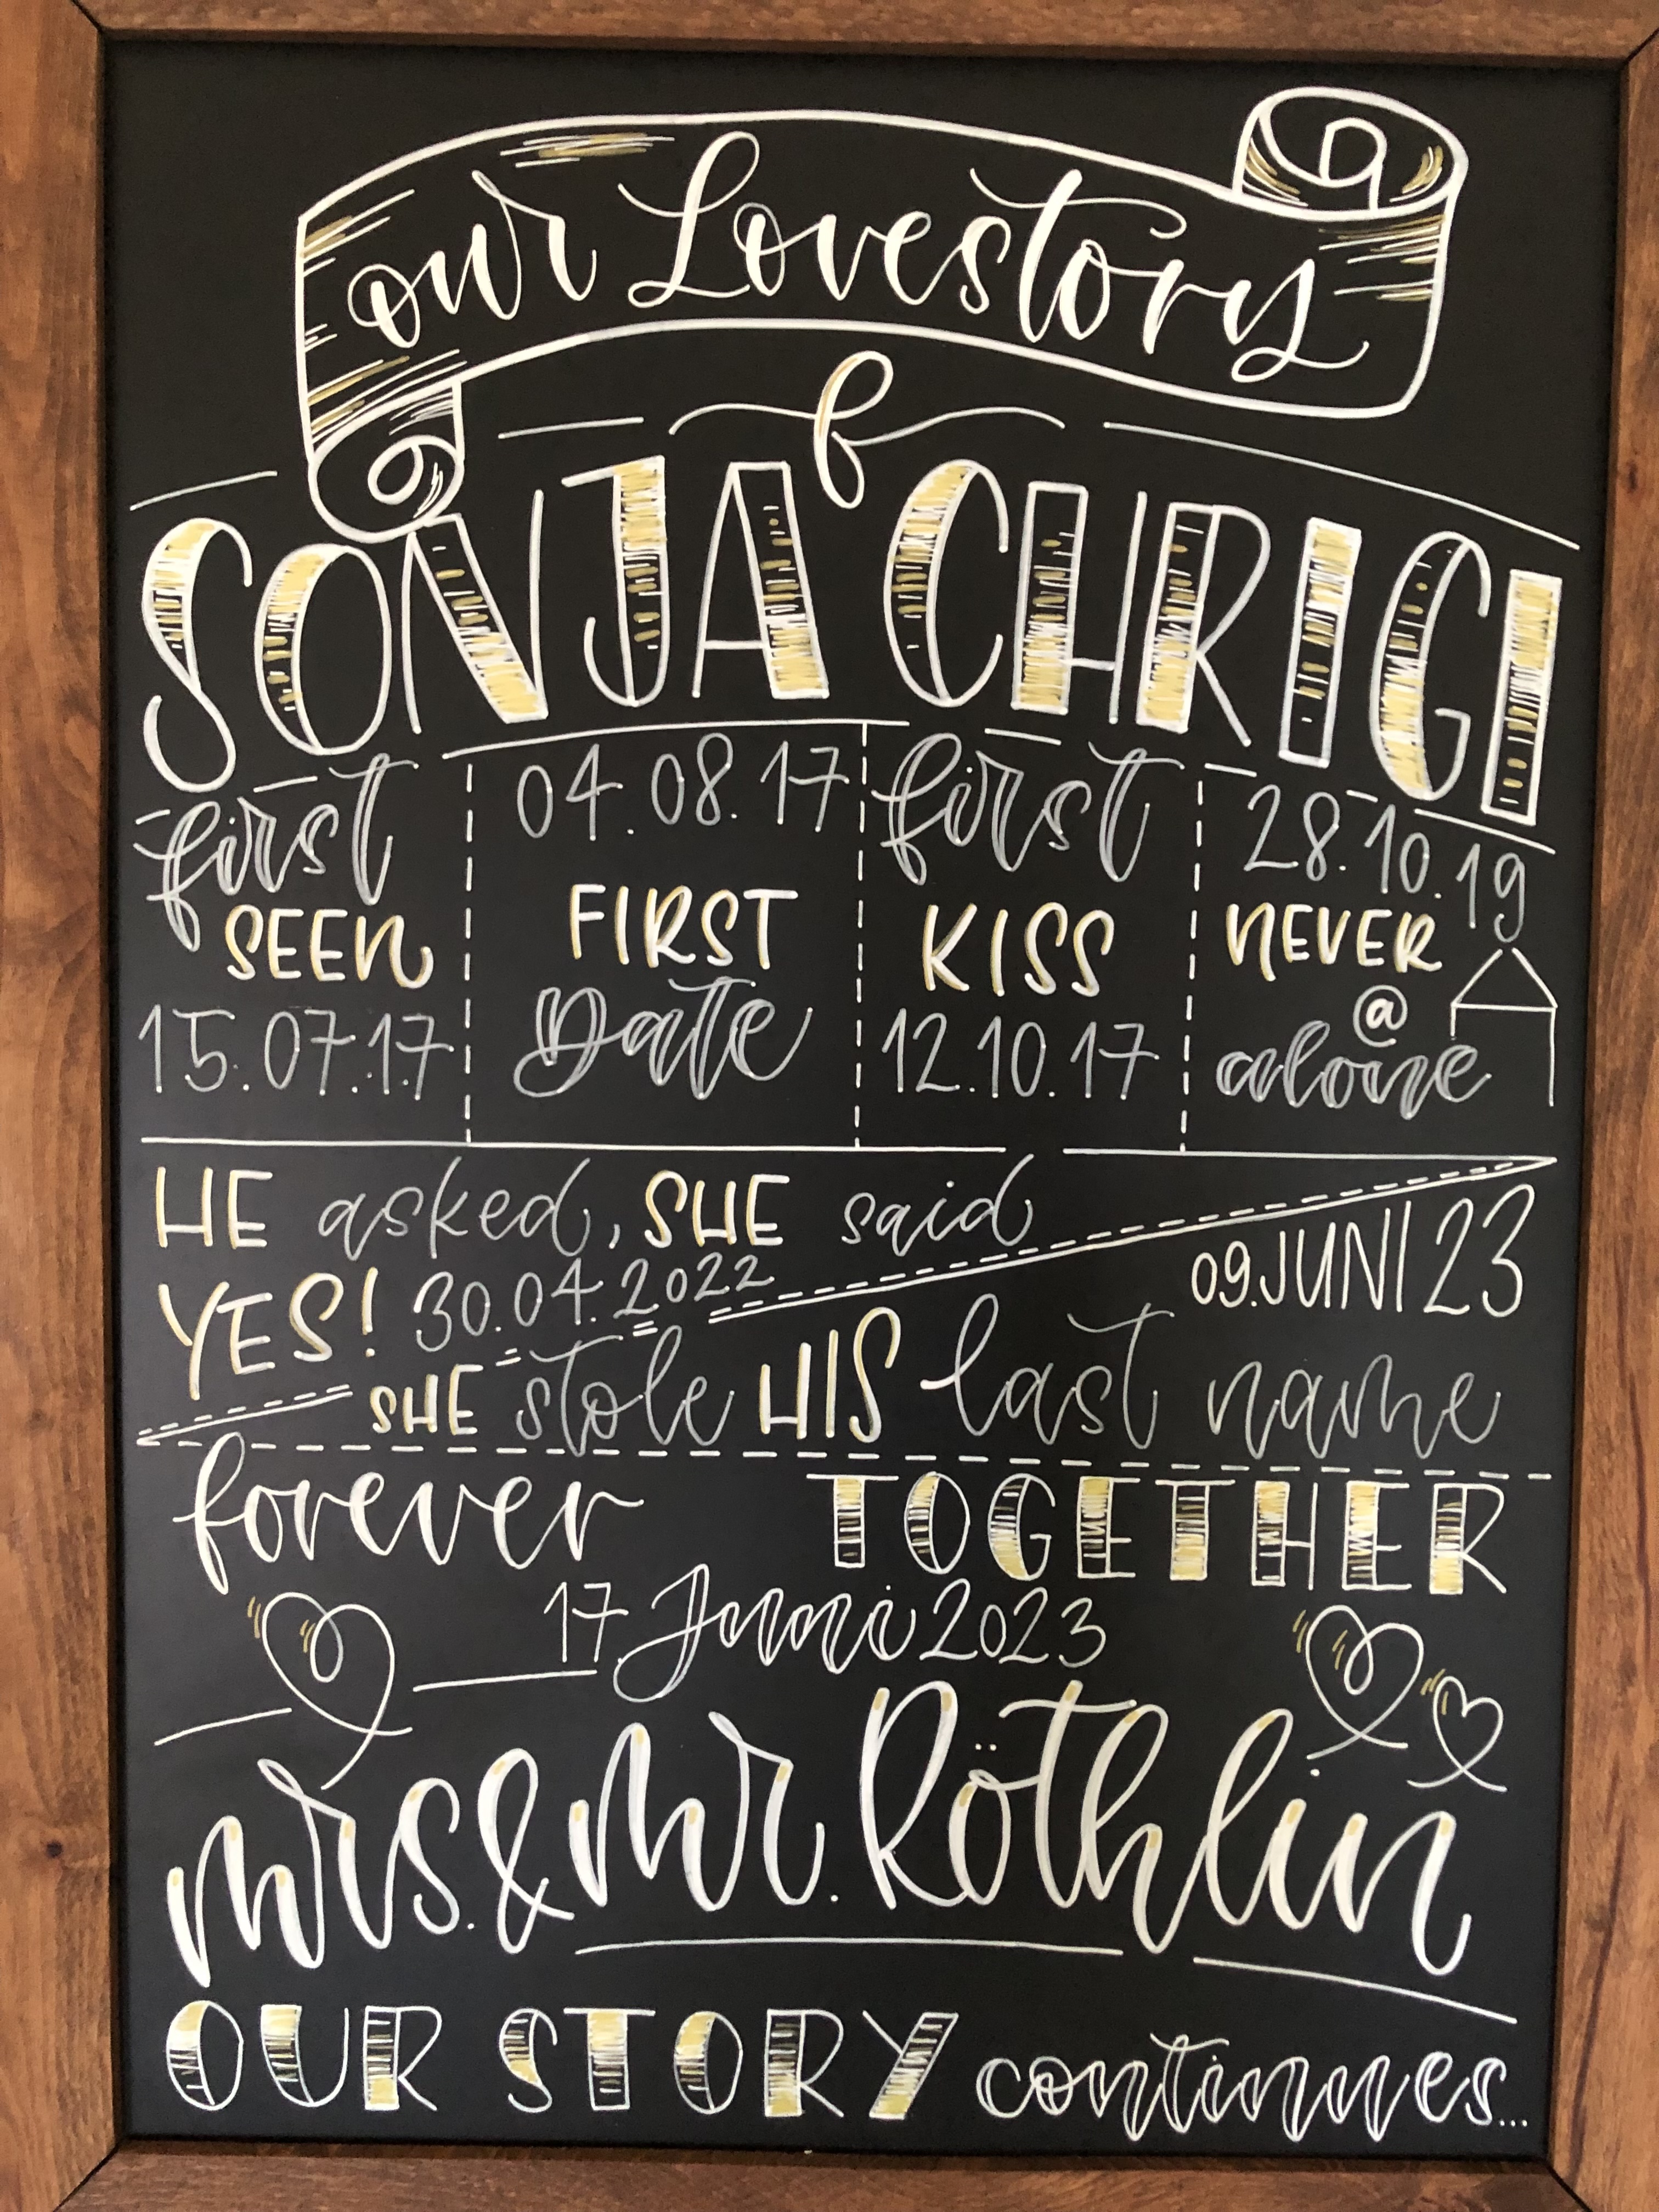 our Lovestory
SONJA & CHRIGI
first
SEEN
15.07.17
04.08.17
FIRST
Date
first
KISS
12.10.17
28.10.19
NEVER
@
alone
HE asked, SHE said
YES! 30.04.2022
09.JUNI 23
SHE stole HIS last name
forever TOGETHER
17 Juni 2023
mrs. & Mr. Röthlin
OUR STORY continues...